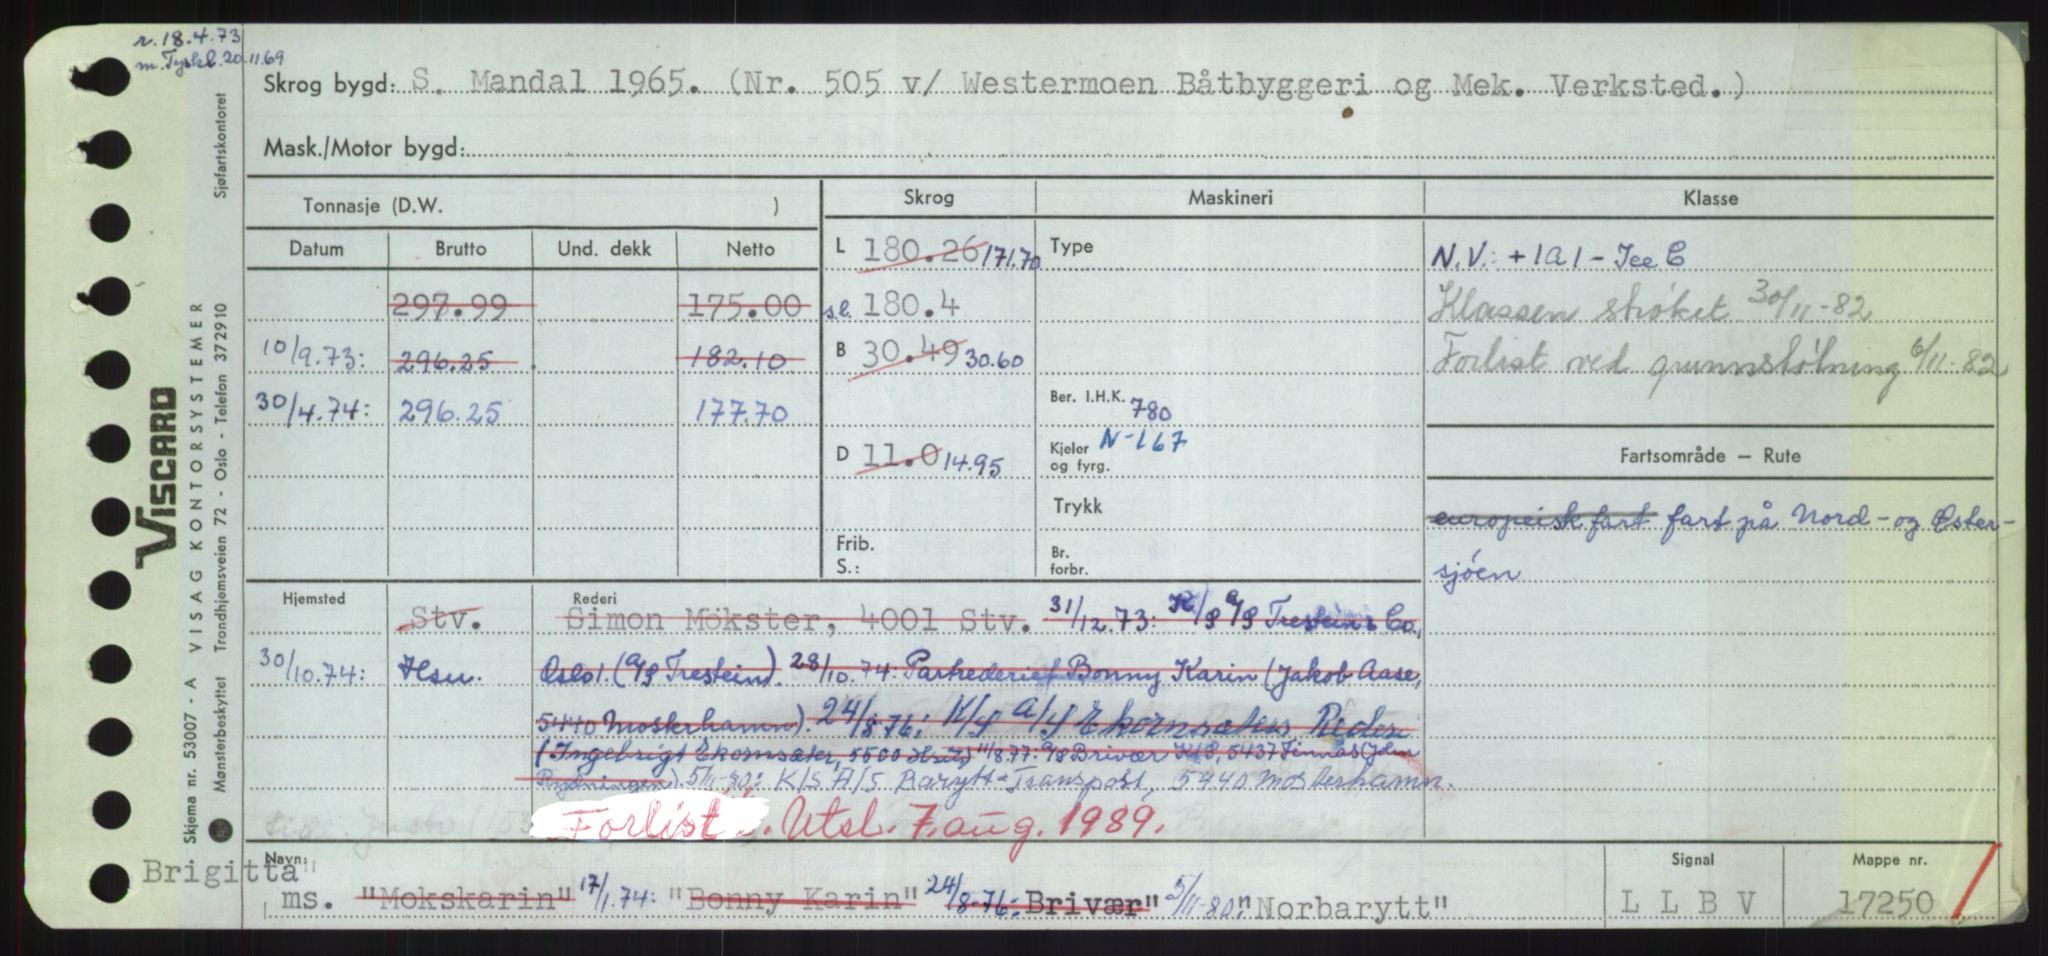 r. 18.4.73
m. Tyskl. 20.11.69
Skrog bygd: S. Mandal 1965. (Nr. 505 v/ Westermoen Båtbyggeri og Mek. Verksted.)
Mask./Motor bygd:
Tonnasje (D.W. )
Skrog
Maskineri
Klasse
Datum Brutto Und. dekk Netto
L 180.26 171.70
Type
N.V.: +1A1 - Ice C
297.99 175.00
s.l. 180.4
Klassen strøket 30/11-82
10/9.73: 296.25 182.10
B 30.49 30.60
Forlist ved grunnstøtning 6/11-82
30/4.74: 296.25 177.70
Ber. I.H.K. 780
Kjeler og fyrg. N-167
D 11.0 14.95
Fartsområde — Rute
Trykk
europeisk fart fart på Nord- og Øster-
sjøen
Frib.
S.:
Br. forbr.
Hjemsted
Rederi
Stv. Simon Mökster, 4001 Stv. 31/12.73: K/S A/S Trestein & Co.,
30/10.74: Hsu. Oslo 1. (A/S Trestein). 28/10.74: Partrederiet Bonny Karin (Jakob Aase,
5440 Mosterhamn). 24/8-76: K/S A/S Ekornsæters Rederi
(Ingebrigt Ekornsæter, 5500 Hsu.) 11/8.77: A/S Brivær K/S, 5437 Finnås (John
Rydningen). 5/11-80: K/S A/S Barytt-Transport, 5440 Mosterhamn.
Forlist. Utsl. 7. aug. 1989.
Navn:
Brigitta"
ms. "Mokskarin" 17/1.74: "Bonny Karin" 24/8-76: Brivær" 5/11-80: "Norbarytt"
Signal
L L B V
Mappe nr.
17250
VISCARD
Skjema nr. 53007 - A VISAG KONTORSYSTEMER
Mønsterbeskyttet Trondhjemsveien 72 - Oslo - Telefon 372910 Sjøfartskontoret